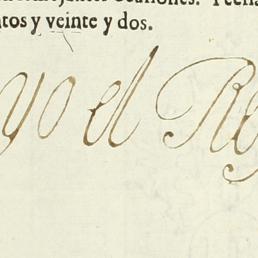 ntos y veinte y dos.
yo el Rey